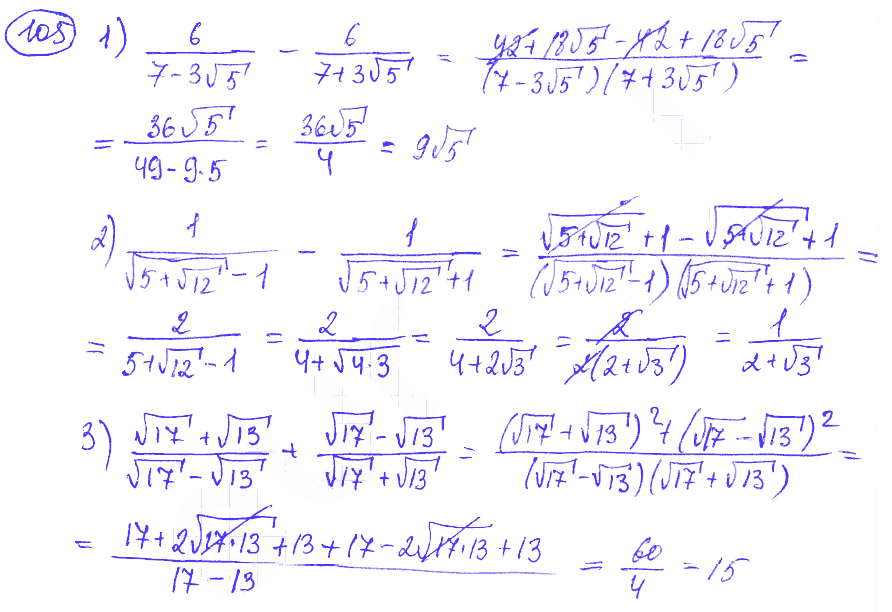 105 1) 6/(7-3√5) - 6/(7+3√5) = (42+18√5-42+18√5)/((7-3√5)(7+3√5)) =
= 36√5/(49-9·5) = 36√5/4 = 9√5
2) 1/(√(5+√12)-1) - 1/(√(5+√12)+1) = (√(5+√12)+1-√(5+√12)+1)/((√(5+√12)-1)(√(5+√12)+1)) =
= 2/(5+√12-1) = 2/(4+√(4·3)) = 2/(4+2√3) = 2/(2(2+√3)) = 1/(2+√3)
3) (√17+√13)/(√17-√13) + (√17-√13)/(√17+√13) = ((√17+√13)²+(√17-√13)²)/((√17-√13)(√17+√13)) =
= (17+2√(17·13)+13+17-2√(17·13)+13)/(17-13) = 60/4 = 15